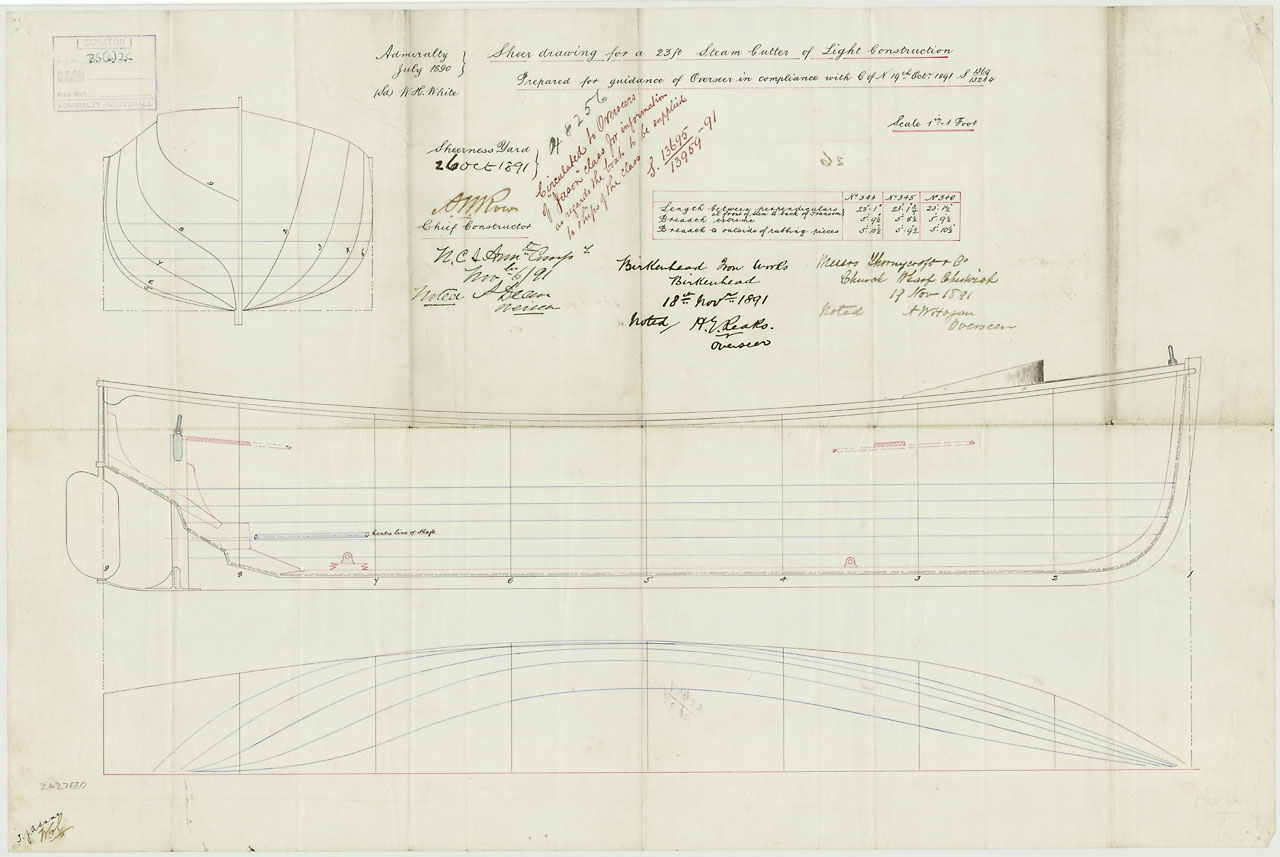 CURATOR
35(a)25
ADMIRALTY - WHITEHALL
Admiralty
July 1890
(Sd) W. H. White
Sheer drawing for a 23ft Steam Cutter of Light Construction
Prepared for guidance of Overseer in compliance with C of N 19th Octr. 1891 S
Scale 1in = 1 Foot
48256
Circulated to Overseers
of "Jason" class for information
as regards the boats to be supplied
to ships of the class
S. 13695/13959 - 91
Sheerness Yard
26 OCT 1891
Chief Constructor
26
No 344 No 345 No 340
Length between perpendiculars
at front of stem to back of Transom
Breadth extreme 5'.9½ 5'.8½ 5'.9½
Breadth to outside of rubbing pieces 5'.10½ 5'.9½ 5'.10½
Nov. 6/91
Noted
Overseer
Birkenhead Iron Works
Birkenhead
18th Novr 1891
Noted H. G. Reaks.
Overseer
Messrs Thornycroft & Co
Church Wharf Chiswick
Nov 1891
Noted
Overseer
Centre Line of Shaft
9 8 7 6 5 4 3 2 1